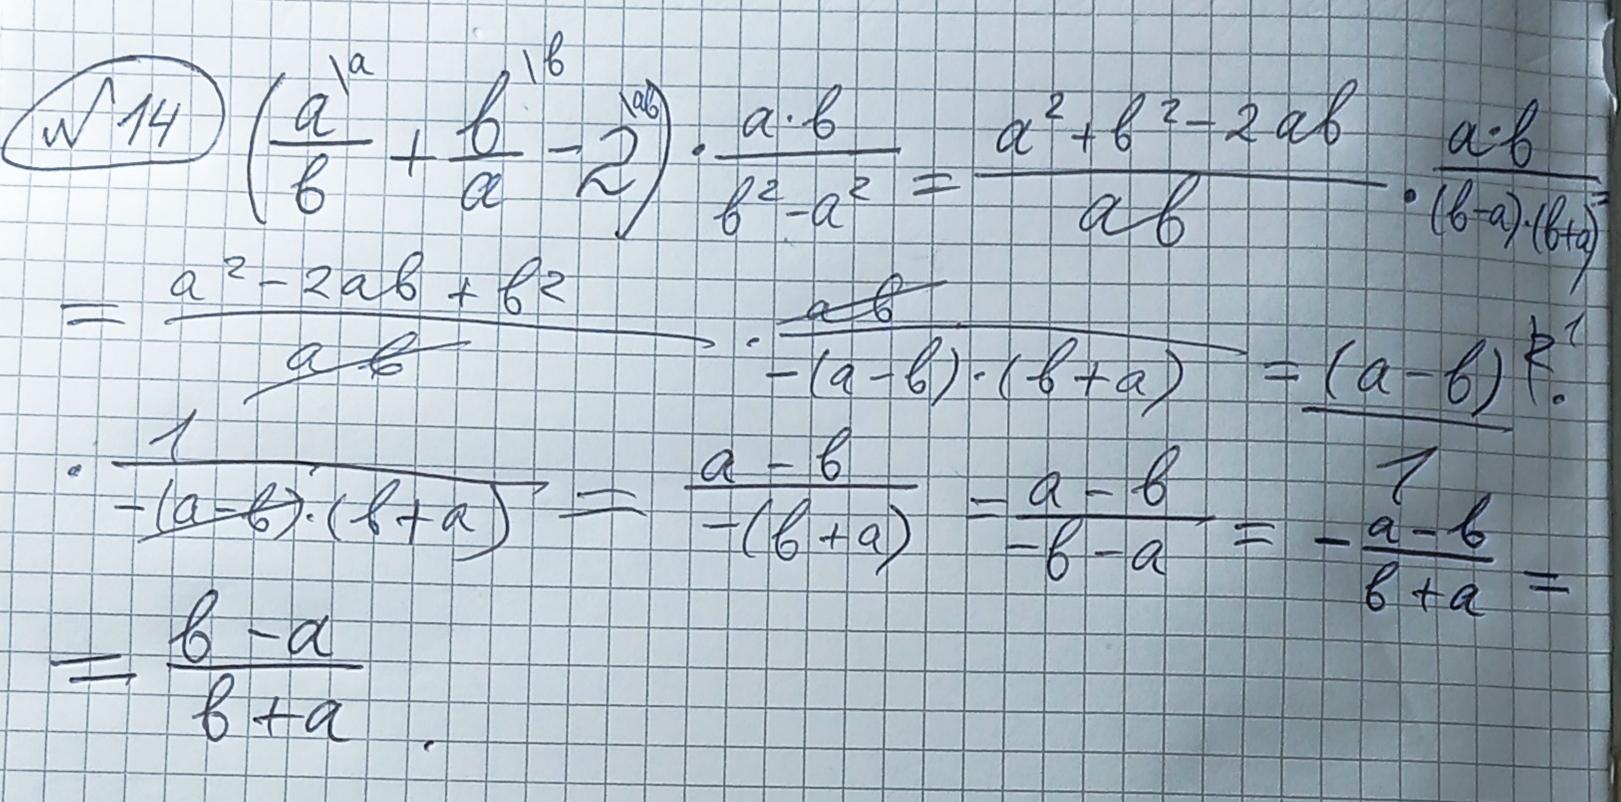 №14 (a\a/b + b\b/a - 2\ab) · a·b/b²-a² = a²+b²-2ab/ab · a·b/(b-a)·(b+a) =
= a²-2ab+b²/ab · ab/-(a-b)·(b+a) = (a-b)²\1/1 ·
· 1/-(a-b)·(b+a) = a-b/-(b+a) = a-b/-b-a = -a-b/b+a =
= b-a/b+a.